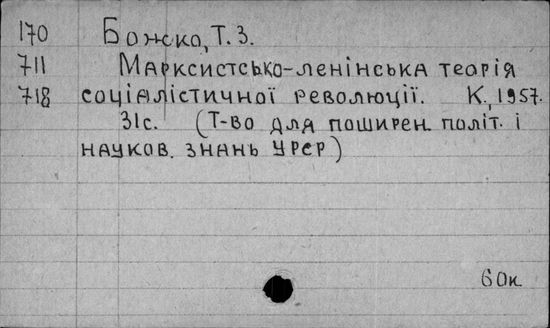 170 Божко, Т. З.
711 Марксистсько-ленінська теорія
718 соціалістичної революції. К., 1957.
31с. (Т-во для поширен. політ. і
науков. знань УРСР)
60к